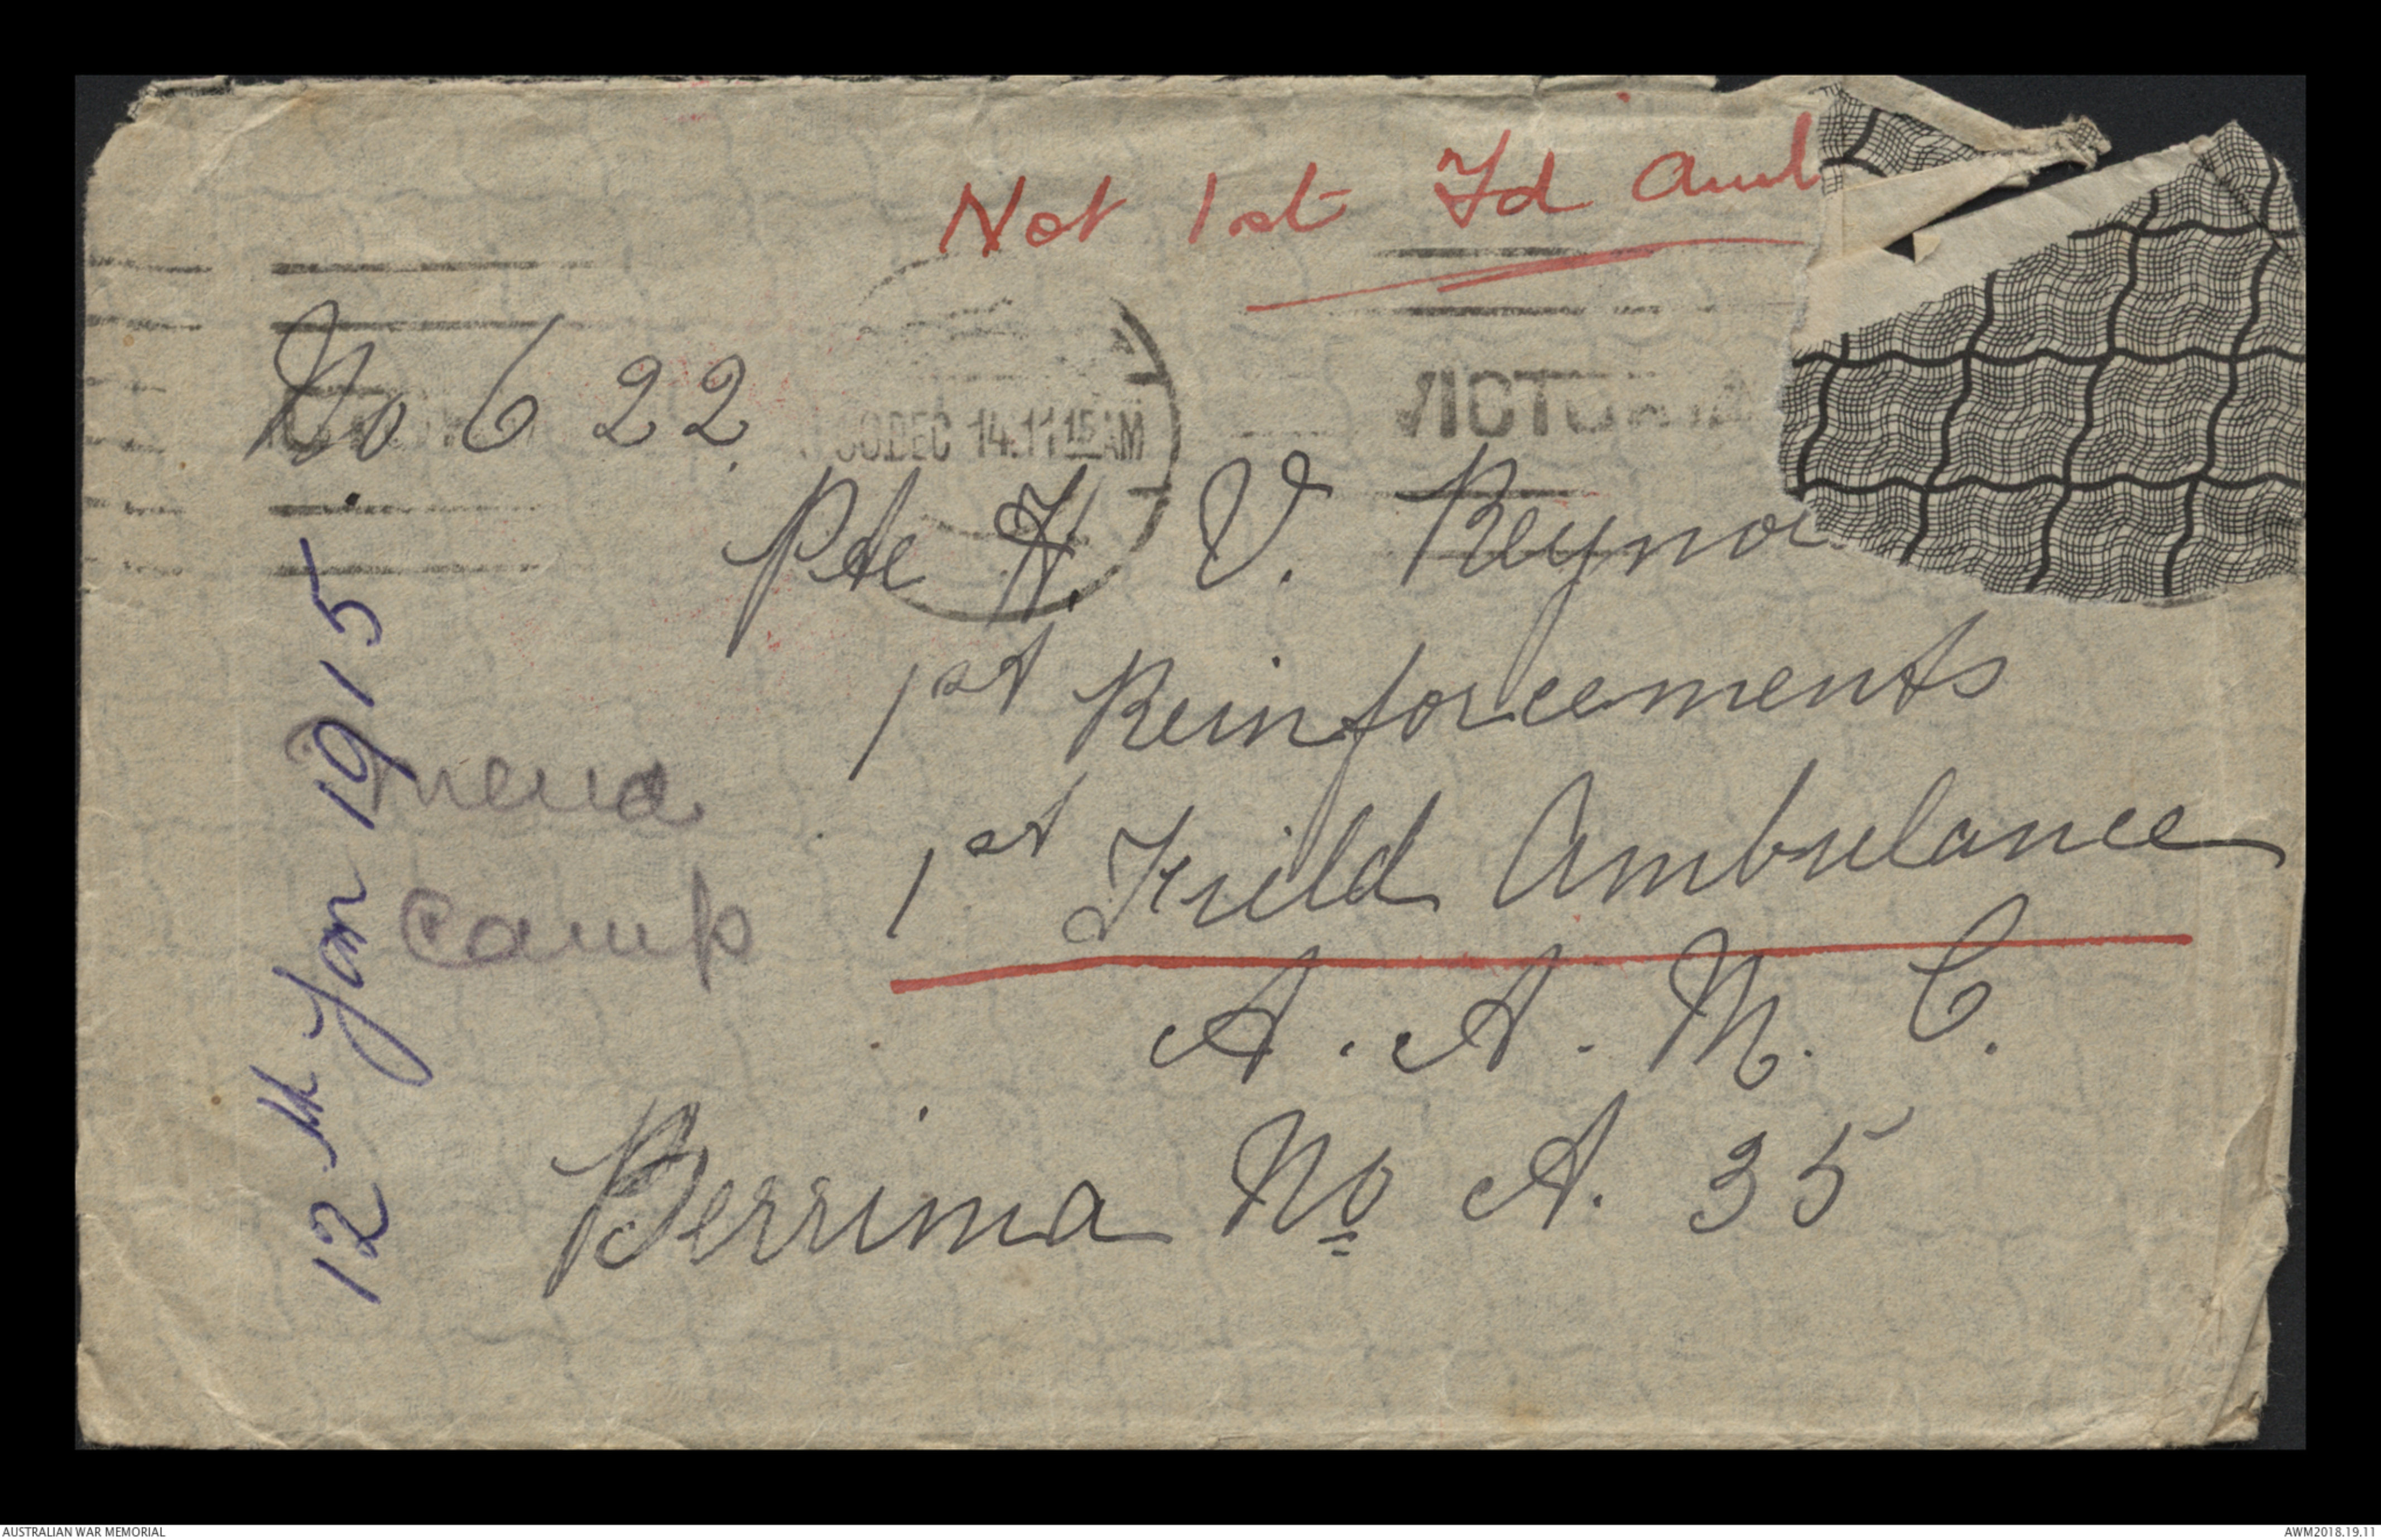 Not 1st Fd Amb
No 622.
30.DEC 14.11 15 AM
VICTORIA
Pte H. V. Reyno
1st Reinforcements
1st Feild Ambulance
A. A. M. C.
Berrima No A. 35
12th Jan 1915
Mena
Camp
AUSTRALIAN WAR MEMORIAL
AWM2018.19.11